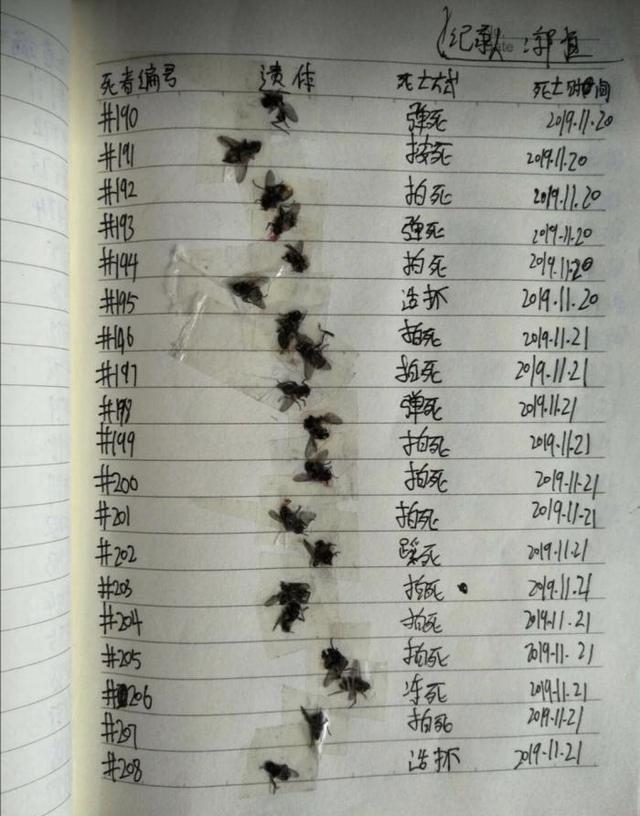 纪录人:
死者编号 遗体 死亡方式 死亡时间
#190 弹死 2019.11.20
#191 按死 2019.11.20
#192 拍死 2019.11.20
#193 弹死 2019.11.20
#194 拍死 2019.11.20
#195 活抓 2019.11.20
#196 拍死 2019.11.21
#197 拍死 2019.11.21
#198 弹死 2019.11.21
#199 拍死 2019.11.21
#200 拍死 2019.11.21
#201 拍死 2019.11.21
#202 踩死 2019.11.21
#203 拍死 2019.11.21
#204 拍死 2019.11.21
#205 拍死 2019.11.21
#206 冻死 2019.11.21
#207 拍死 2019.11.21
#208 活抓 2019.11.21